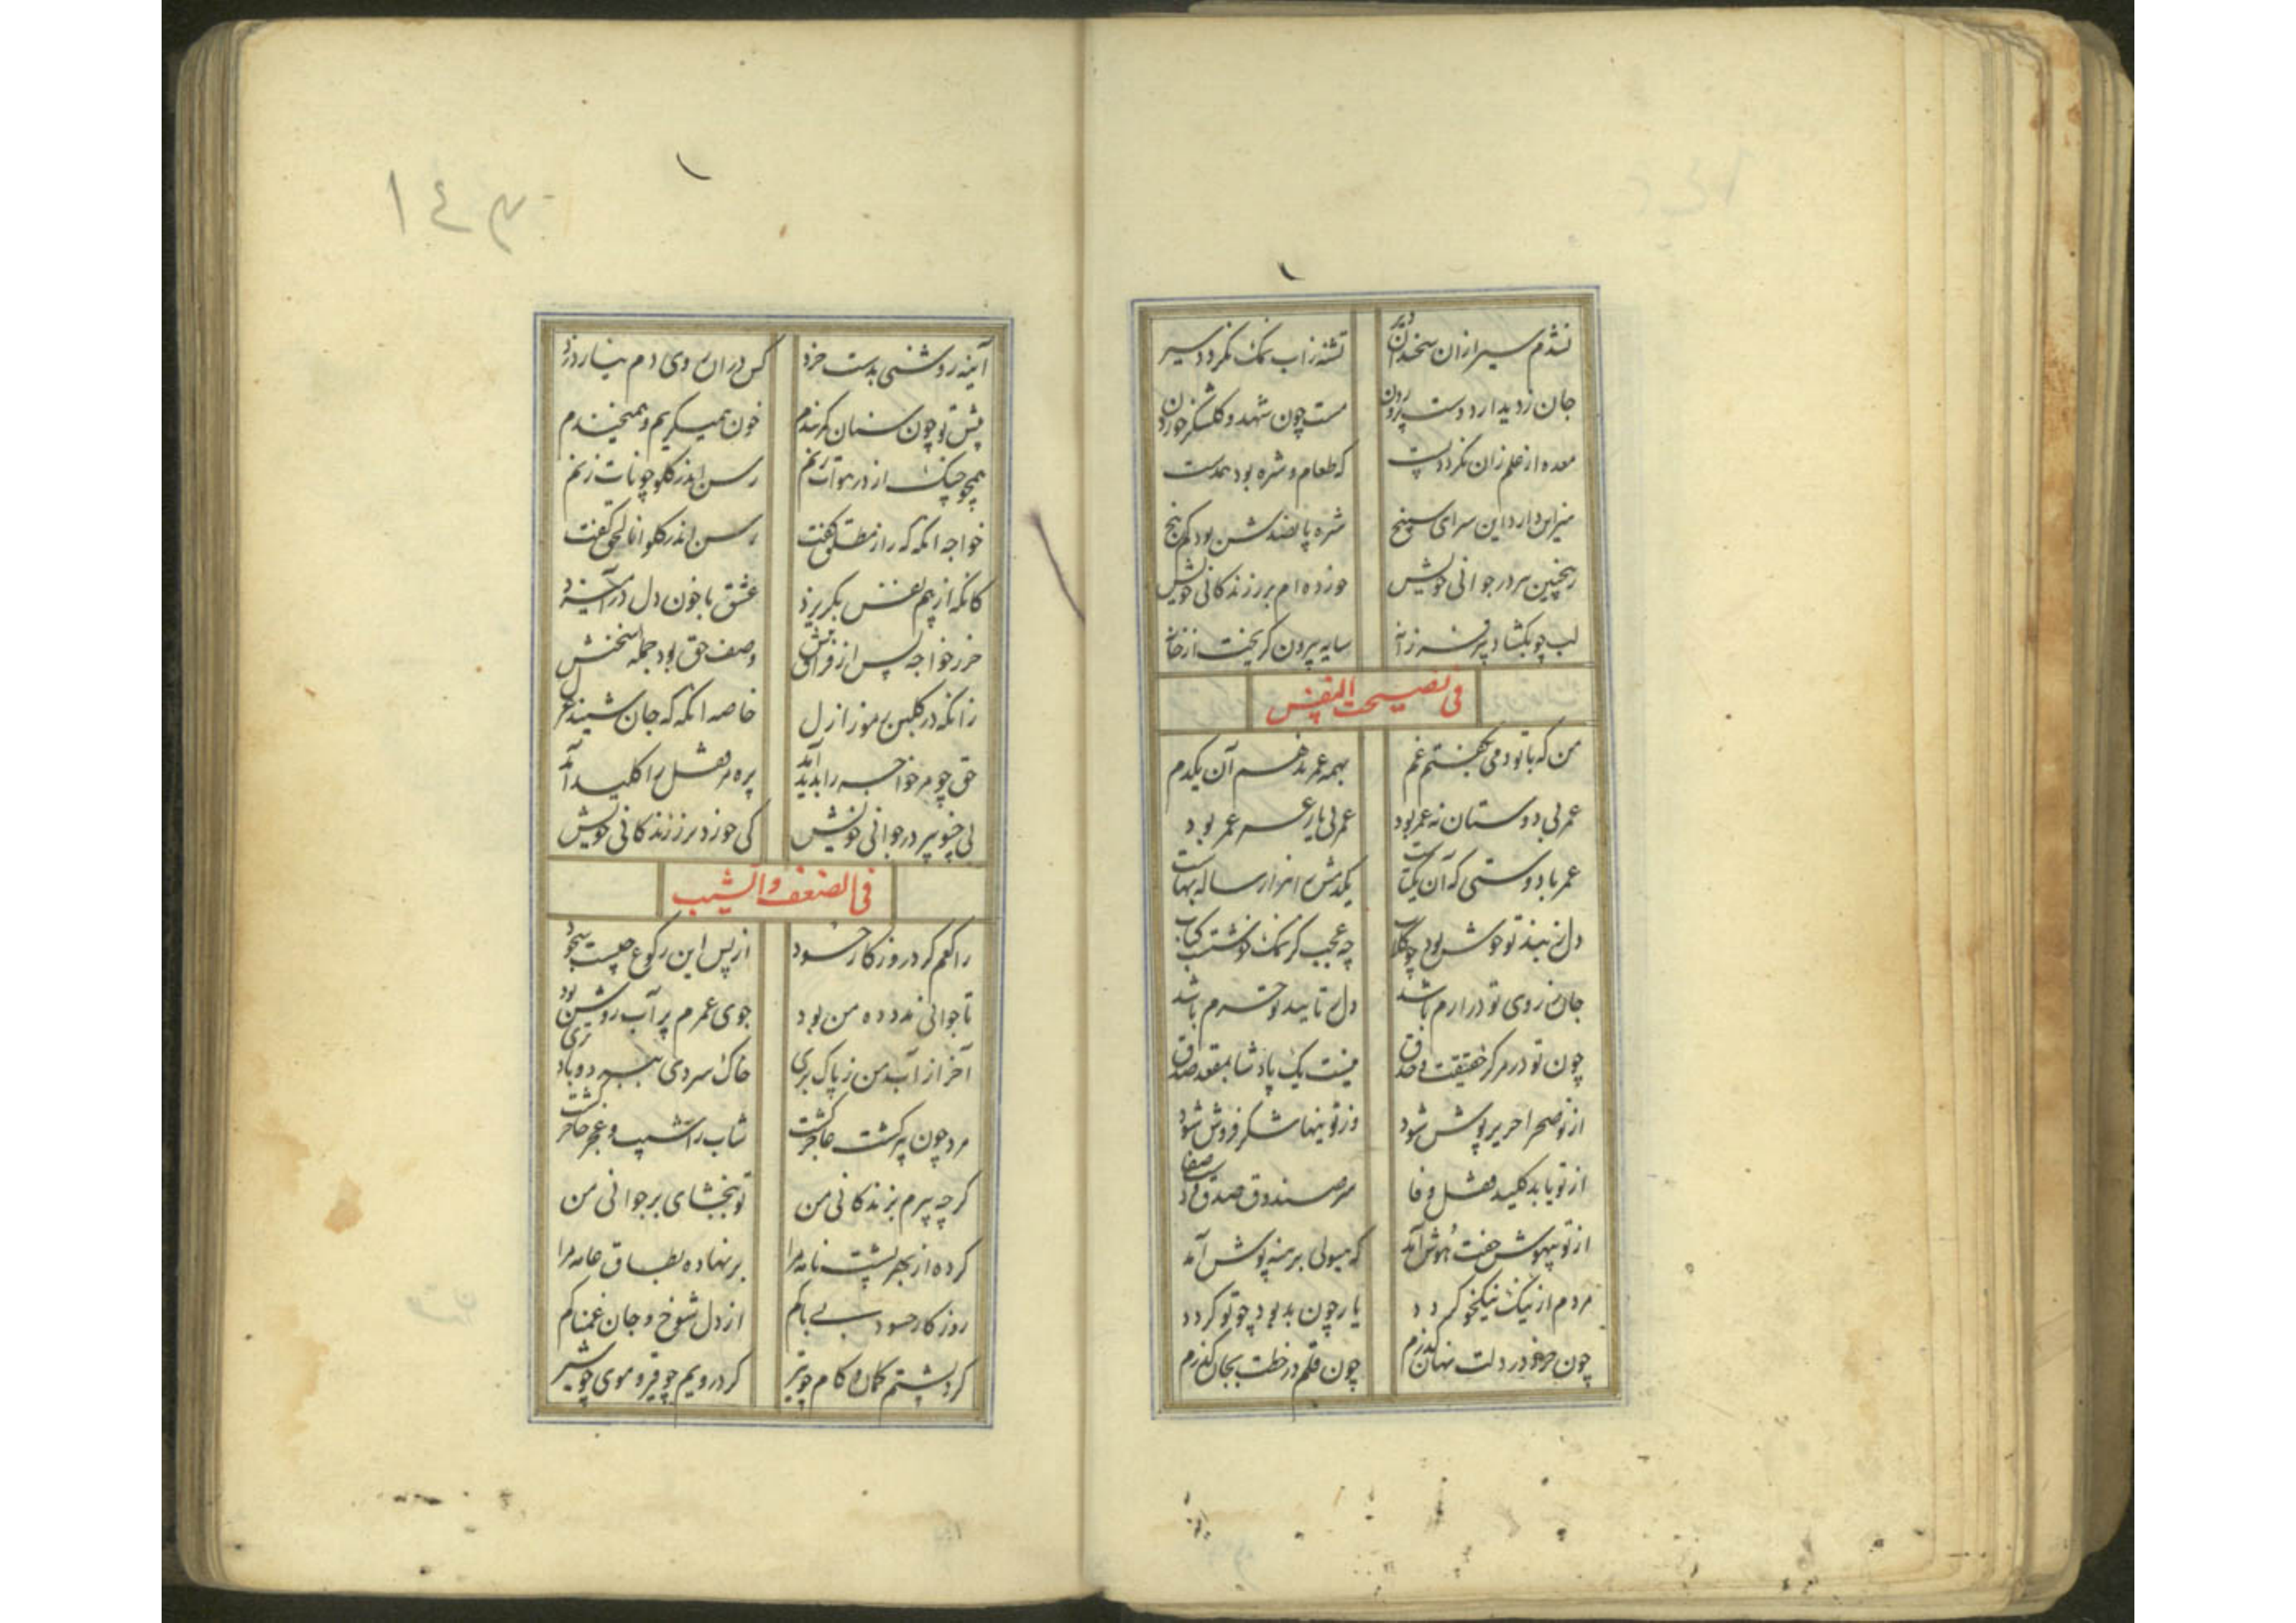 نشدم سیر ازان سخندان دیر
تشنه ز اب نمک نکردد سیر
جان ز دیدار دوست پرورن
هست چون شهد و کلشکر خوردن
معده از علم زان نکردد پست
که طعام و شره بود همدست
میزبان دارد این سرای سپنج
شره پانصدش بود کم پنج
ریختن سر در جوانی خویش
خورده ام بر ز زندکانی خویش
لب چو بکشاد پیر فرزانه
سایه بیرون کریخت از خانه
فی نصیحت النفس
من که با تو دمی بکفتم غم
بهمه عمر ندهم آن یکدم
عمر بی دوستان نه عمر بود
عمر بی یار عمر عمر بود
عمر با دوستی که آن یکتاست
یکدمش را هزار ساله بهاست
دل ز پند تو خوش بود چو کلاب
چه عجب کر نمک خوشست کباب
جان ز روی تو در ارم باشد
دل تا بید تو خرم باشد
چون تو در مرکز حقیقت و حذق
نیست یک پادشا بمقعد صدق
از تو صحرا حریرپوش شود
وز تو تنها شکرفروش شود
از تو یابد کلید قفل وفا
سر صندوق صدق و صفا
از تو بیهوش جفت هوش آمد
که هیولی برهنه پوش آمد
مردم از نیک نیکخو کردد
یار چون بد بود چو تو کردد
چون خرد در دلت نهان نکذرم
چون قلم در خطت بجان کذرم
١٤٣
آینه روشنی بدست خرد
کس دران روی دم نیارد زد
پیش تو چون سنان کمربندم
خون همیکریم و همیخندم
همچو چنک از در هوات زنم
رسن اندر کلو چو نات زنم
خواجه انکه که راز مطلق کفت
رسن اندر کلو انا الحق کفت
کانکه از بیم نفس بکریزد
عشق با خون دل درآمیزد
خرد خواجه پس از فراق تنش
وصف حق بود جمله سخنش
زانکه در کلبن رموز ازل
خاصه انکه که جان شنیند عزل
حق چو مر خواجه را بدید آمد
پره مر قفل را کلید آمد
بی چنو پیر در جوانی خویش
کی خورد بر ز زندکانی خویش
فی الضعف و الشیب
راکعم کرد روزکار حسود
از پس این رکوع چیست سجود
تا جوانی مدد ده من بود
جوی عمرم پر آب روشن بود
آخر از آب من ز پاک بری
خاک سردی ببرد و باد تری
مرد چون پیر کشت عاجز کشت
شاب را شیب و عجز حاجز کشت
کرچه پیرم بزندکانی من
تو ببخشای بر جوانی من
کرده از بهر پشت نامه مرا
برنهاده بطاق خامه مرا
روزکار حسود بی باکم
از دل شوخ و جان غمناکم
کرد پشتم کمان و کام چو تیر
کرد رویم چو قیر و موی چو شیر